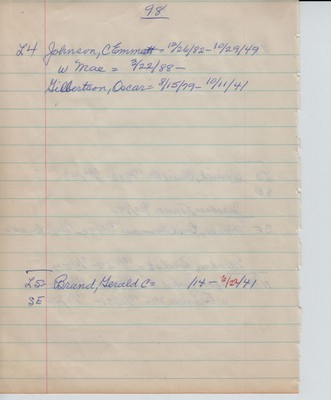 98
L4 Johnson, C Emmett = 10/26/82 - 10/29/49
w Mae = 3/22/88 -
Gilbertson, Oscar = 8/15/79 - 10/11/41
L5 Brund, Gerald C = /14 - /41
SE